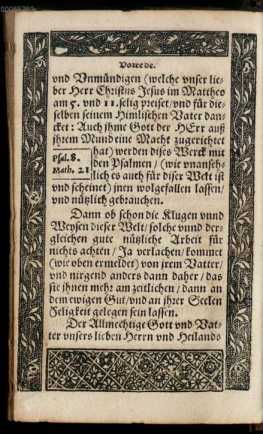 Vorrede.
vnd Vnmündigen (welche vnser lie-
ber Herr Christus Jesus im Mattheo
am 5. vnd 11. selig preiset/ vnd für die-
selben seinem Himlischen Vater dan-
cket: Auch jhme Gott der HErr auß
jhrem Mund eine Macht zugerichtet
hat) werden dises Werck mit
Psal. 8.
den Psalmen/ (wie vnanseh-
Math. 21
lich es auch für diser Welt ist
vnd scheinet) jnen wolgefallen lassen/
vnd nützlich gebrauchen.
Dann ob schon die Klugen vnnd
Weysen dieser Welt/ solche vnnd der-
gleichen gute nützliche Arbeit für
nichts achten/ Ja verlachen/ kommet
(wie oben ermeldet) von jrem Vatter/
vnd nirgend anders dann daher/ das
sie jhnen mehr am zeitlichen/ dann an
dem ewigen Gut/ vnd an jhrer Seelen
Seligkeit gelegen sein lassen.
Der Allmechtige Gott vnd Vat-
ter vnsers lieben Herrn vnd Heilands